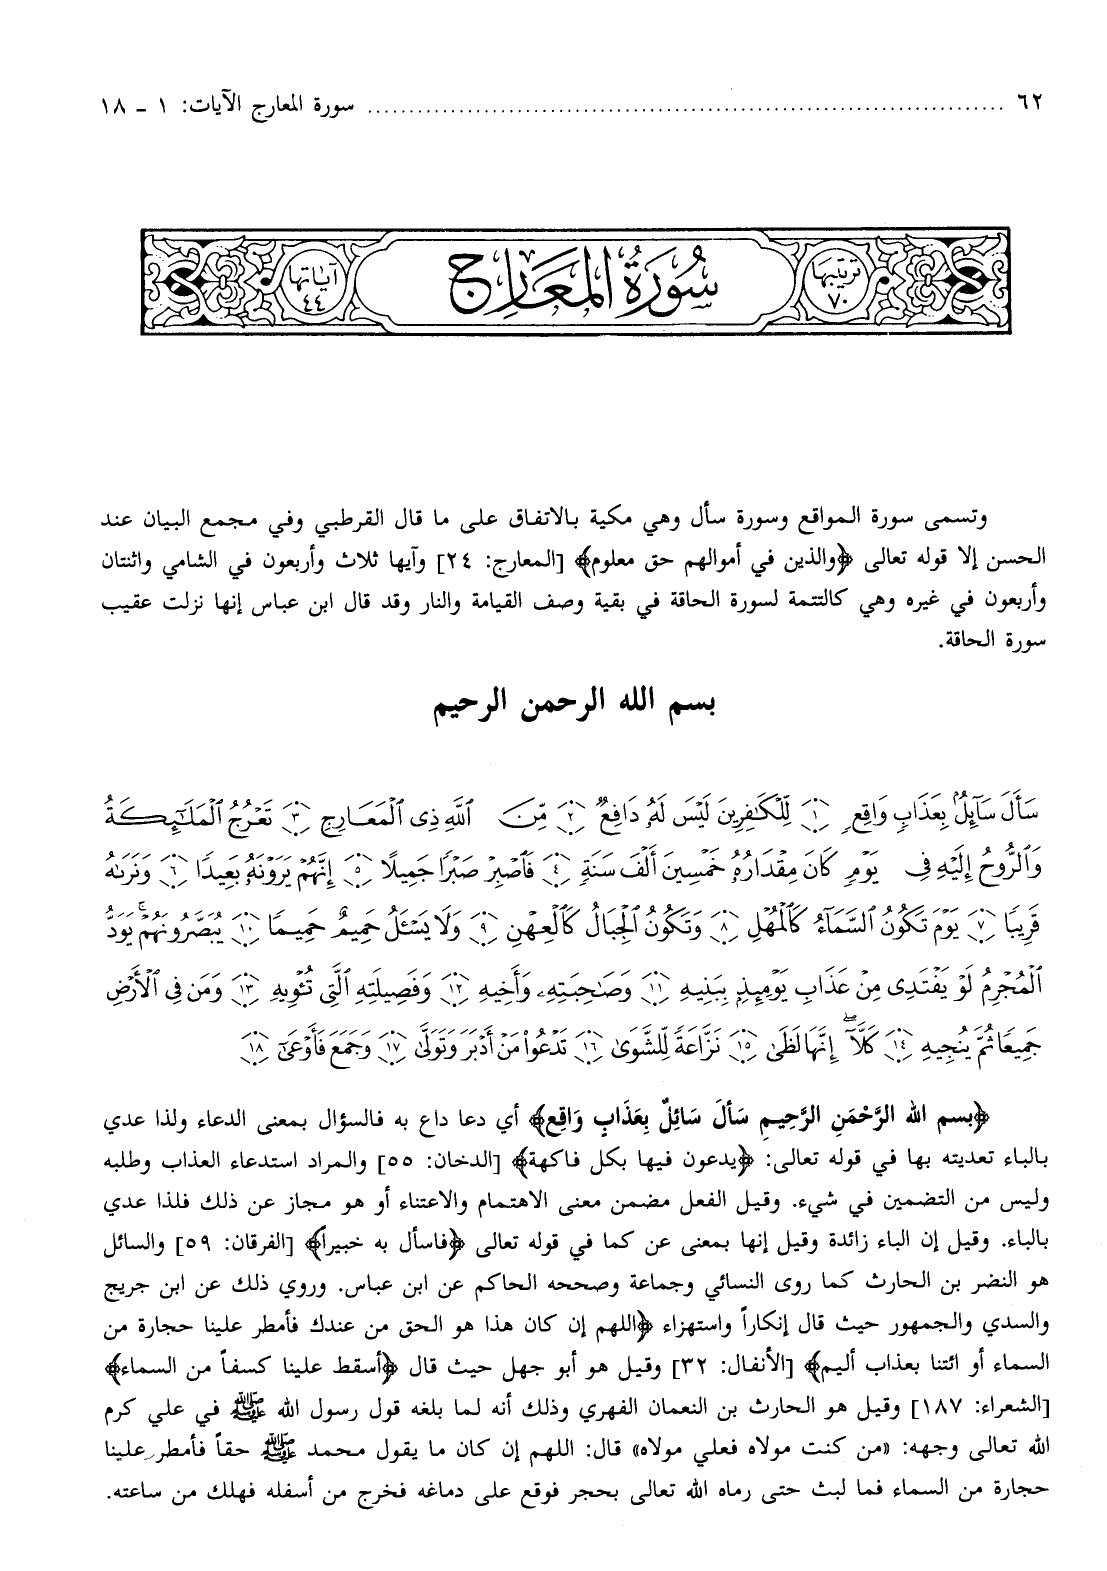 ٦٢ ........ سورة المعارج الآيات: ١ - ١٨
ترتيبها ٧٠ سُورَةُ المَعَارِج آياتها ٤٤
وتسمى سورة المواقع وسورة سأل وهي مكية بالاتفاق على ما قال القرطبي وفي مجمع البيان عند
الحسن إلا قوله تعالى ﴿والذين في أموالهم حق معلوم﴾ [المعارج: ٢٤] وآيها ثلاث وأربعون في الشامي واثنتان
وأربعون في غيره وهي كالتتمة لسورة الحاقة في بقية وصف القيامة والنار وقد قال ابن عباس إنها نزلت عقيب
سورة الحاقة.
بسم الله الرحمن الرحيم
سَأَلَ سَآئِلٌۢ بِعَذَابٖ وَاقِعٖ ١ لِّلۡكَٰفِرِينَ لَيۡسَ لَهُۥ دَافِعٞ ٢ مِّنَ ٱللَّهِ ذِي ٱلۡمَعَارِجِ ٣ تَعۡرُجُ ٱلۡمَلَٰٓئِكَةُ
وَٱلرُّوحُ إِلَيۡهِ فِي يَوۡمٖ كَانَ مِقۡدَارُهُۥ خَمۡسِينَ أَلۡفَ سَنَةٖ ٤ فَٱصۡبِرۡ صَبۡرٗا جَمِيلًا ٥ إِنَّهُمۡ يَرَوۡنَهُۥ بَعِيدٗا ٦ وَنَرَىٰهُ
قَرِيبٗا ٧ يَوۡمَ تَكُونُ ٱلسَّمَآءُ كَٱلۡمُهۡلِ ٨ وَتَكُونُ ٱلۡجِبَالُ كَٱلۡعِهۡنِ ٩ وَلَا يَسۡـَٔلُ حَمِيمٌ حَمِيمٗا ١٠ يُبَصَّرُونَهُمۡۚ يَوَدُّ
ٱلۡمُجۡرِمُ لَوۡ يَفۡتَدِي مِنۡ عَذَابِ يَوۡمِئِذِۭ بِبَنِيهِ ١١ وَصَٰحِبَتِهِۦ وَأَخِيهِ ١٢ وَفَصِيلَتِهِ ٱلَّتِي تُـٔۡوِيهِ ١٣ وَمَن فِي ٱلۡأَرۡضِ
جَمِيعٗا ثُمَّ يُنجِيهِ ١٤ كَلَّآۖ إِنَّهَا لَظَىٰ ١٥ نَزَّاعَةٗ لِّلشَّوَىٰ ١٦ تَدۡعُواْ مَنۡ أَدۡبَرَ وَتَوَلَّىٰ ١٧ وَجَمَعَ فَأَوۡعَىٰٓ ١٨
﴿بسم الله الرَّحْمَنِ الرَّحِيمِ سَألَ سَائِلٌ بِعَذَابٍ وَاقِع﴾ أي دعا داع به فالسؤال بمعنى الدعاء ولذا عدي
بالباء تعديته بها في قوله تعالى: ﴿يدعون فيها بكل فاكهة﴾ [الدخان: ٥٥] والمراد استدعاء العذاب وطلبه
وليس من التضمين في شيء. وقيل الفعل مضمن معنى الاهتمام والاعتناء أو هو مجاز عن ذلك فلذا عدي
بالباء. وقيل إن الباء زائدة وقيل إنها بمعنى عن كما في قوله تعالى ﴿فاسأل به خبيراً﴾ [الفرقان: ٥٩] والسائل
هو النضر بن الحارث كما روى النسائي وجماعة وصححه الحاكم عن ابن عباس. وروي ذلك عن ابن جريج
والسدي والجمهور حيث قال إنكاراً واستهزاء ﴿اللهم إن كان هذا هو الحق من عندك فأمطر علينا حجارة من
السماء أو ائتنا بعذاب أليم﴾ [الأنفال: ٣٢] وقيل هو أبو جهل حيث قال ﴿أسقط علينا كسفاً من السماء﴾
[الشعراء: ١٨٧] وقيل هو الحارث بن النعمان الفهري وذلك أنه لما بلغه قول رسول الله ﷺ في علي كرم
الله تعالى وجهه: «من كنت مولاه فعلي مولاه» قال: اللهم إن كان ما يقول محمد ﷺ حقاً فأمطر علينا
حجارة من السماء فما لبث حتى رماه الله تعالى بحجر فوقع على دماغه فخرج من أسفله فهلك من ساعته.